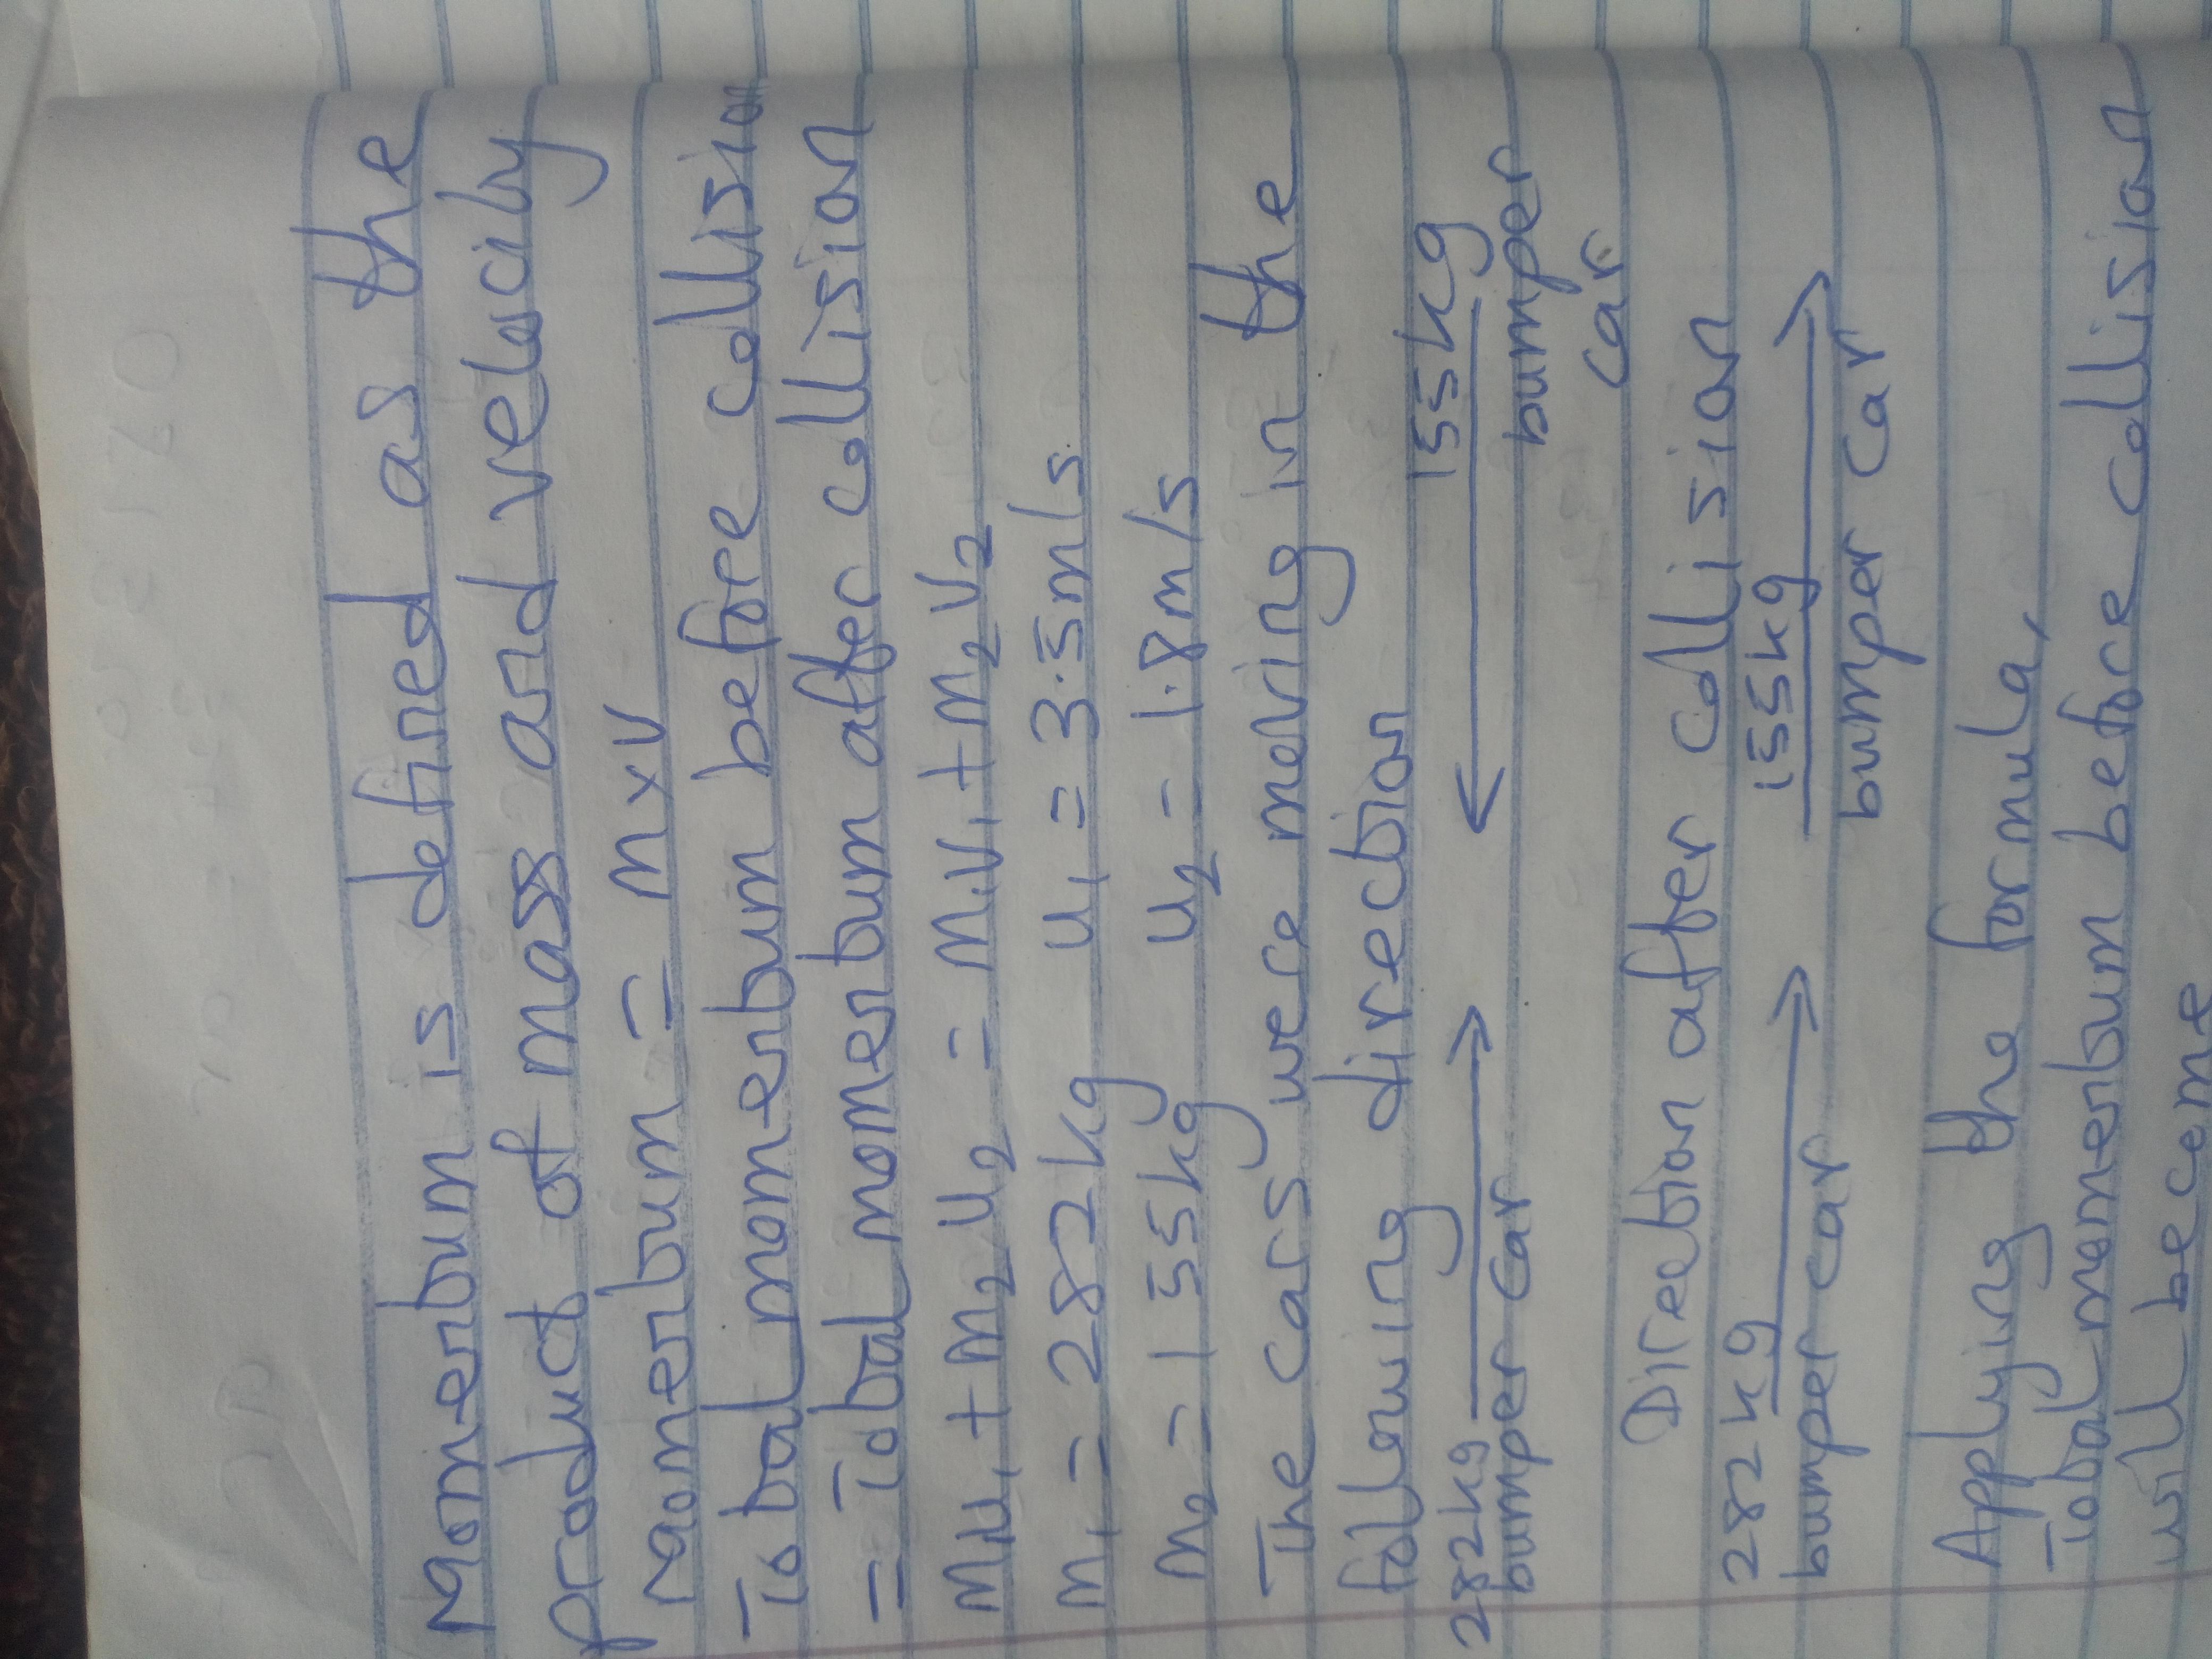 Momentum is defined as the
product of mass and velocity
Momentum = m x v
Total momentum before collision
= Total momentum after collision
m₁u₁ + m₂u₂ = m₁v₁ + m₂v₂
m₁ = 282kg u₁ = 3.5m/s
m₂ = 155kg u₂ = 1.8m/s
The cars were moving in the
following direction
282kg → ← 155kg
bumper car bumper
car
Direction after collision
282kg → 155kg →
bumper car bumper car
Applying the formula,
Total momentum before collision
will become